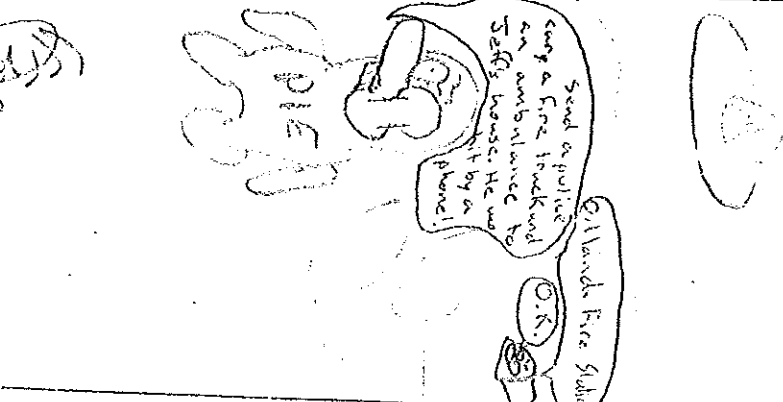 Send a police
car, a fire truck and
an ambulance to
Jeff's house. He was
hit by a
phone!
Fire Station
O.K.
PIE